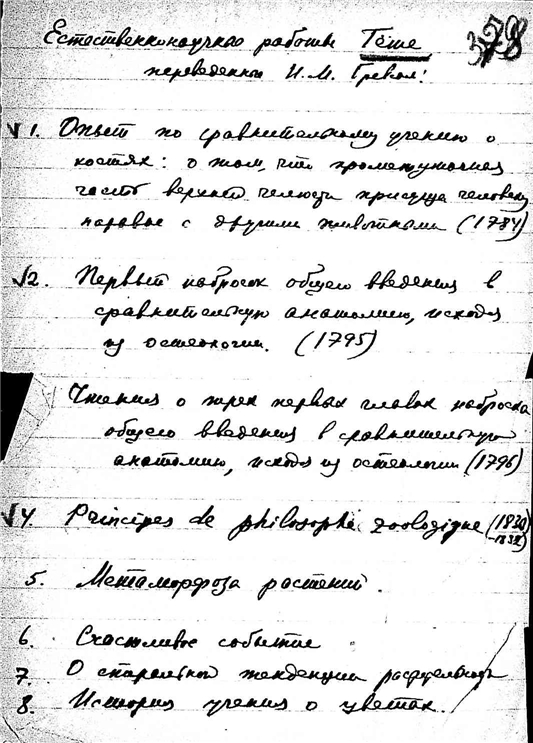 378
Естественнонаучные работы Гёте
переведенные И. М.
√ 1. Опыт по сравнительному учению о
костях: о том, что промежуточная
часть верхней челюсти присуща человеку
наравне с другими животными (1784)
√2. Первый набросок общего введения в
сравнительную анатомию, исходя
из остеологии. (1795)
Чтения о трех первых главах наброска
общего введения в сравнительную
анатомию, исходя из остеологии (1796)
√4. Principes de philosophie zoologique (1830
-1832)
5. Метаморфоза растений.
6. Счастливое событие
7. О спиральной тенденции растительности
8. История учения о цветах.